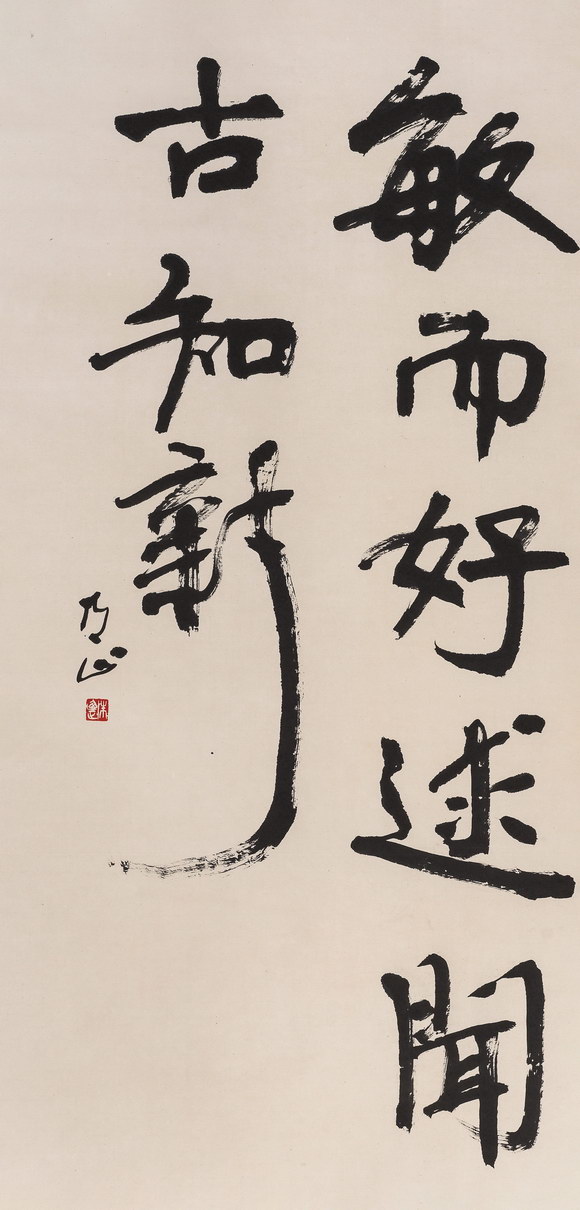 敏而好述聞
古知新
乃正